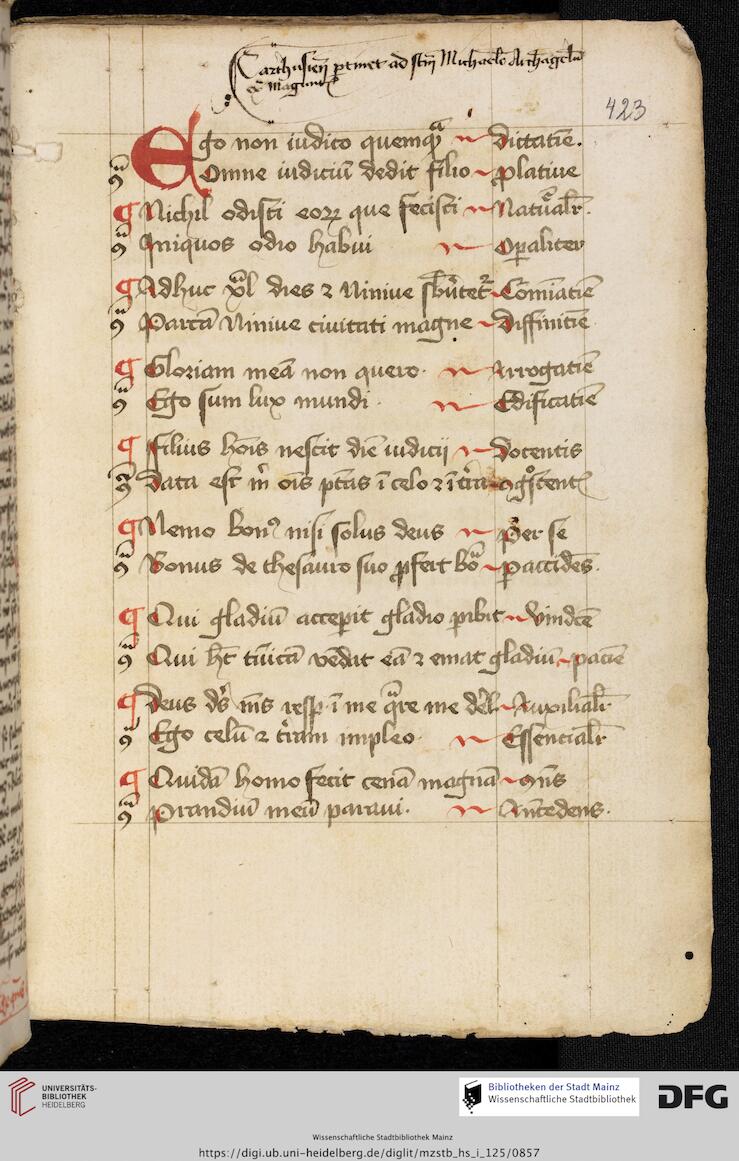 Carthusieñ ꝑtinet ad sctm̄ Michaelē Archāgelū
ex̄ Magunt̄
423
Ego non iudico quemqᷓ ~ dictatīe.
9ͣ Omne iudiciū dedit filio ~ ꝓlatiue
¶ Nichil odisti eoꝝ que fecisti ~ Natᷓalr̄.
9ͣ Iniquos odio habui ~ Oꝑaliter
¶ Adhuc xͣl dies ⁊ Niniue sb̄ūtet̄ ~ Com̄iatīe
9ͣ Parcā Niniue ciuitati magne ~ Diffinitīe
¶ Gloriam meā non quero · ~ Arrogatīe
9ͣ Ego sum lux mundi · ~ Edificatīe
¶ Filius hoīs nescit diē iudicii ~ docentis
9ͣ Data est m̄ oīs ptās ī celo ⁊ ī t̄ra ~
¶ Nemo bonꝰ nisi solus deus ~ Per se
9ͣ Bonus de thesauro suo ꝓfert boͣ ~ ꝑ accidēs.
¶ Qui gladiū acceꝑit gladio ꝑibit ~ vindcē
9ͣ Qui ht̄ tūicā vēdat eā ⁊ emat gladiū ~ paciē
¶ Deus ds̄ ms̄ resp̄. ī me qͣre me del̄ ~ Auxilialr̄
9ͣ Ego celū ⁊ t̄ram impleo · ~ Essencialr̄
¶ Quidā homo fecit cenā magnā ~ 9n̄s
9ͣ Prandiū meū paraui · ~ An̄cedens.
UNIVERSITÄTS-
BIBLIOTHEK
HEIDELBERG
Bibliotheken der Stadt Mainz
Wissenschaftliche Stadtbibliothek
DFG
Wissenschaftliche Stadtbibliothek Mainz
https://digi.ub.uni-heidelberg.de/diglit/mzstb_hs_i_125/0857